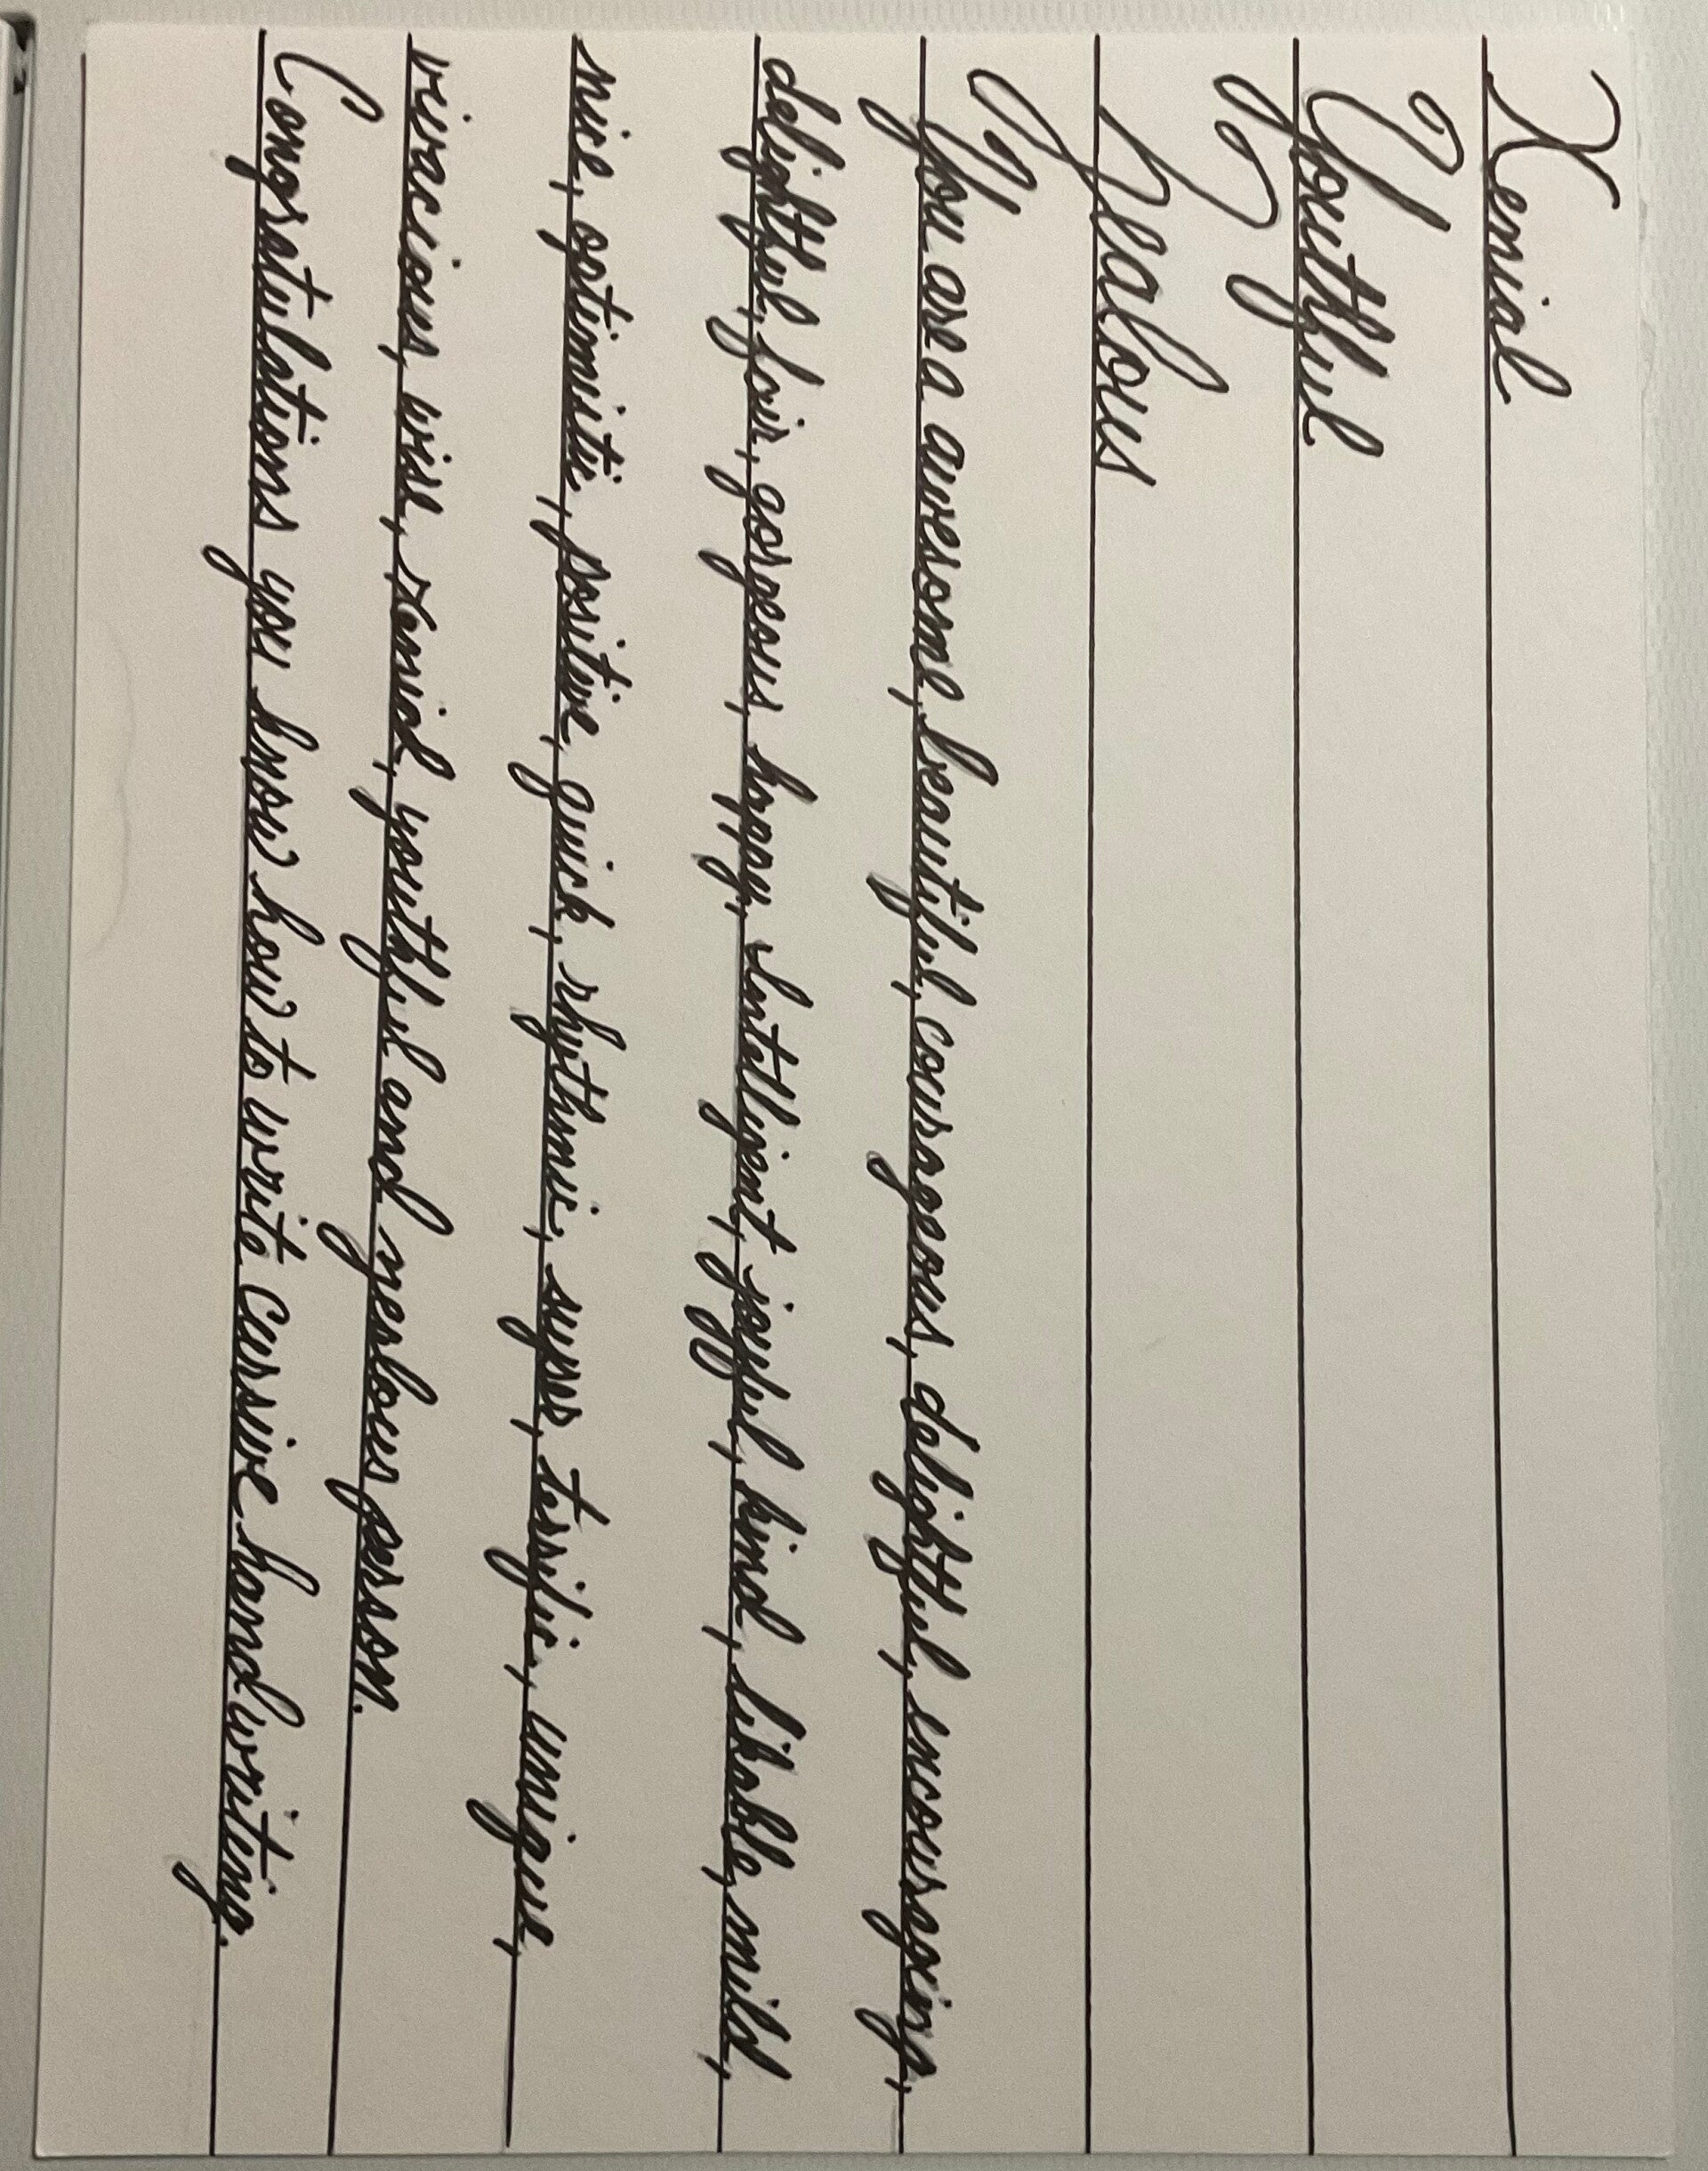 Xenial
Youthful
Zealous
You are a awesome, beautiful, courageous, delightful, encourageing,
delightful, fair, gorgeous, happy, intelligent, joyful, kind, likable, mild,
nice, optimistic, positive, quick, rhythmic, super, terrific, unique,
vivacious, wise, xenial, youthful and zealous person.
Congratulations you know how to write cursive handwriting.